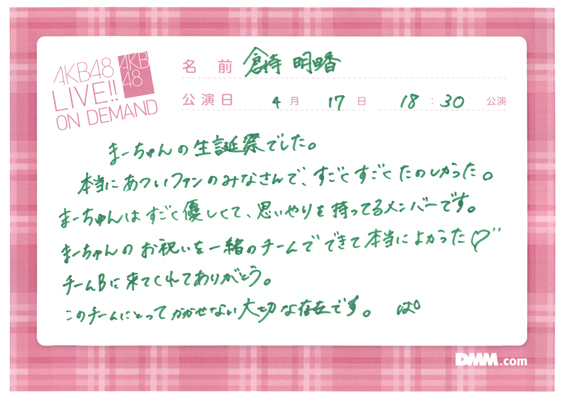 AKB48
LIVE!!
ON DEMAND
AKB
48
名 前 倉持 明日香
公演日 4 月 17 日 18 : 30 公演
まーちゃんの生誕祭でした。
本当にあついファンのみなさんで、すごくすごくたのしかった。
まーちゃんはすごく優しくて、思いやりを持ってるメンバーです。
まーちゃんのお祝いを一緒のチームでできて本当によかった♡
チームBに来てくれてありがとう。
このチームにとってかかせない大切な存在です。 ぱ
DMM.com